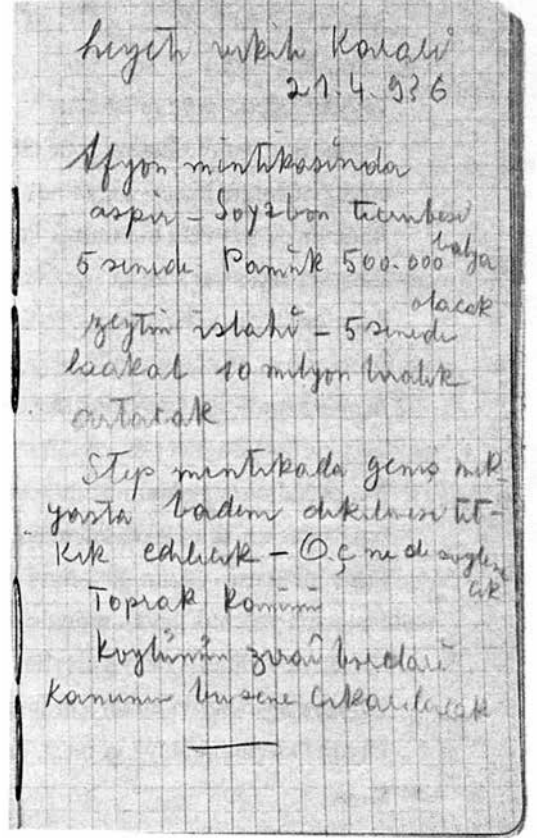 heyeti vekile Kararı
21.4.936
Afyon mıntıkasında
aspir – Soya bon tecrübesi
5 senede Pamuk 500.000 balya
olacak
zeytin ıslahı – 5 senede
laakal 10 milyon liralık
artacak
Step mıntıkada geniş mik-
yasta badem dikilmesi tet-
kik edilecek – O.ç ne de söylene
cek
Toprak Kanunu
Köylünün ziraî borcları
Kanunu bu sene çıkarılacak